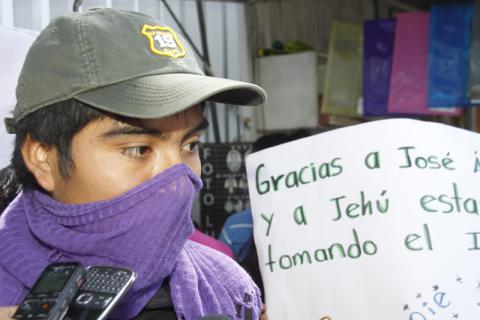 13
Gracias a José
y a Jehú esta
tomando el I
pie